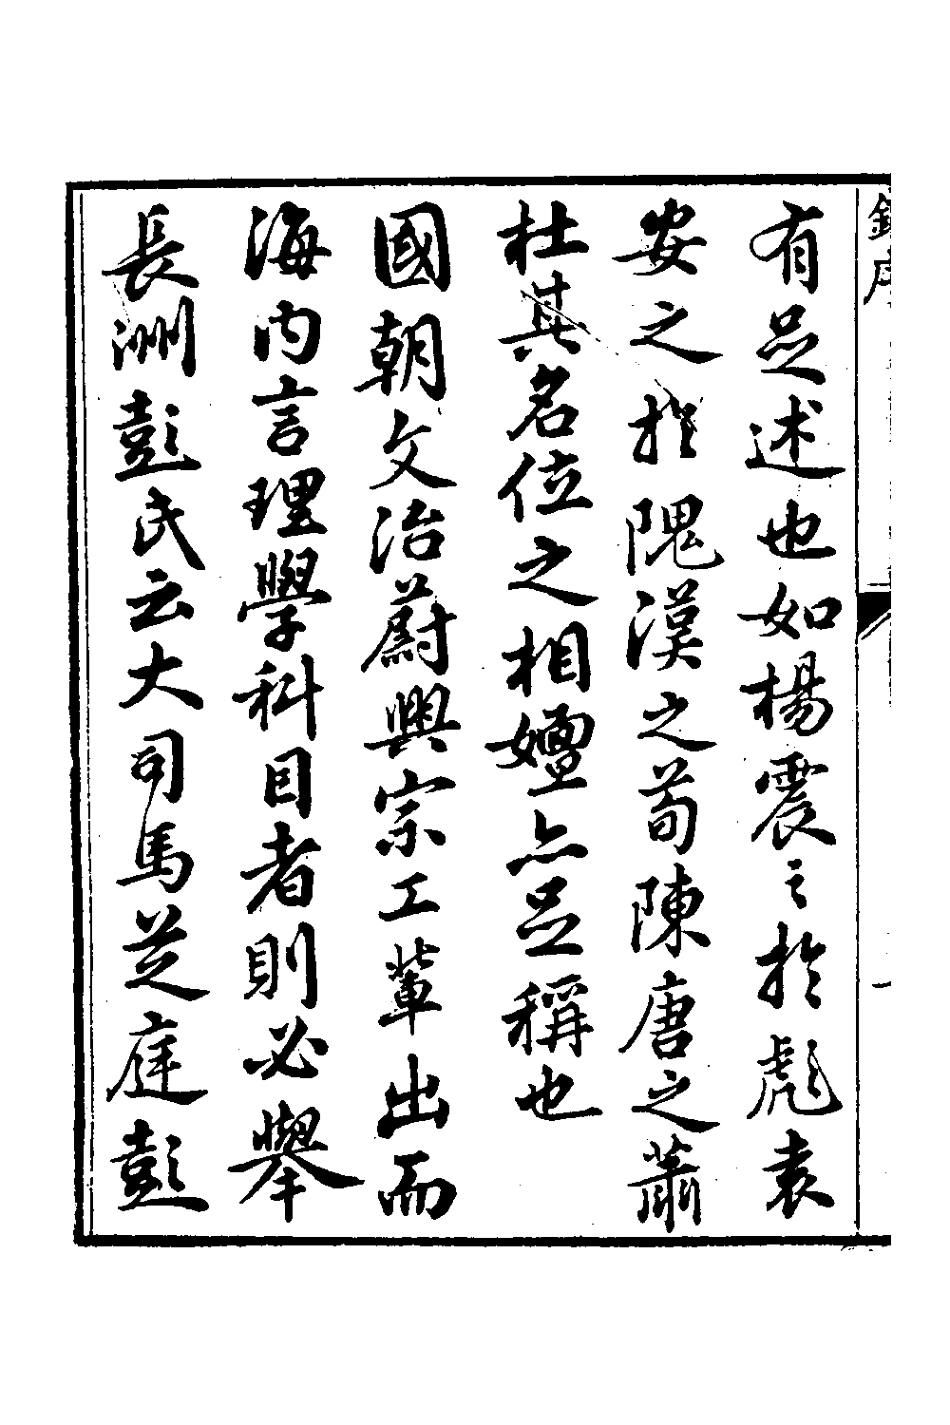 序
一
有足述也如楊震之於彪袁
安之於隗漢之荀陳唐之蕭
杜其名位之相嬗亦足稱也
國朝文治蔚興宗工輩出而
海内言理學科目者則必舉
長洲彭氏云大司馬芝庭彭